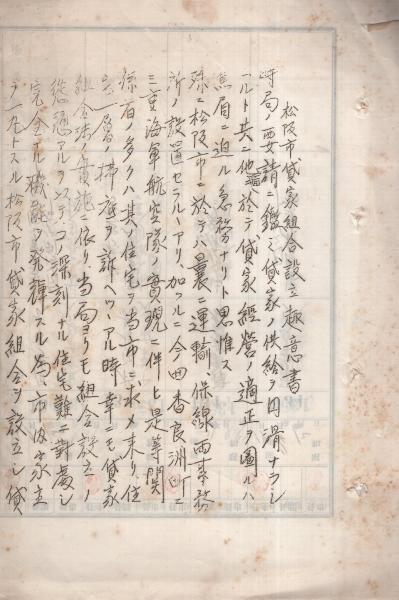 松阪市貸家組合設立趣意書
時局ノ要請ニ鑑ミ貸家ノ供給ヲ円滑ナラシ
ムルト共ニ他面於テ貸家経営ノ適正ヲ圖ルハ
焦眉ニ迫ル急務ナリト思惟ス
殊ニ松阪市ニ於テハ曩ニ運輸、保線両事務
所ノ設置セラルヽアリ加フルニ今回香良洲町ニ
三重海軍航空隊ノ實現ニ伴ヒ是等関
係者ノ多クハ其ノ住宅ヲ当市ニ求メ来リ、住
宅ノ層拂底ヲ訴ヘツヽアル時幸ニモ貸家
組合法實施ニ依リ当局ヨリモ組合設立ノ
慫慂アルヲ以テコノ深刻ナル住宅難ニ対處シ
完全ナル機能ヲ発揮スル為、市内家主
ヲ一丸トスル松阪市貸家組合ヲ設立シ貸